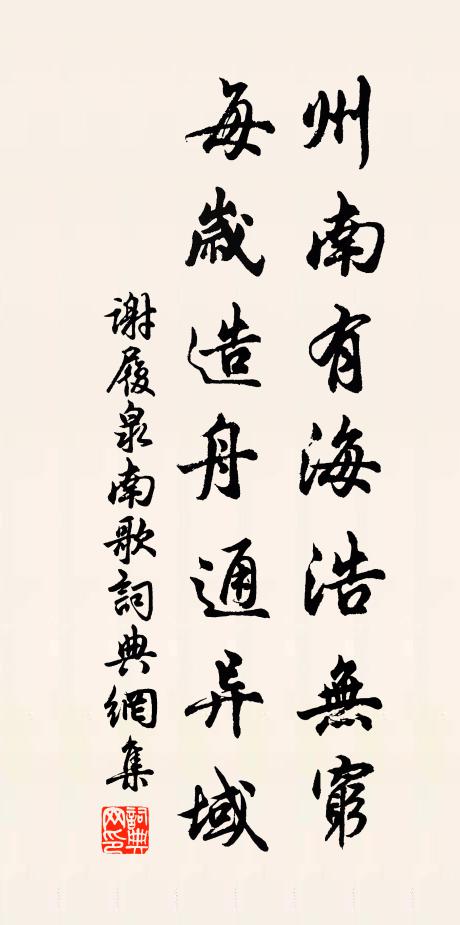 州南有海浩無窮
每歲造舟通异域
謝履泉南歌詞典網集
詞典
網印